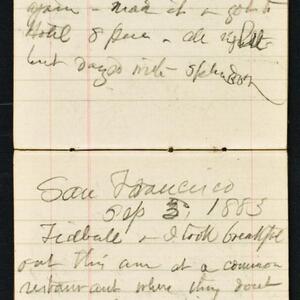 again - made it & got to
Hotel 8 pm - all right
but days with
San Francisco
Sep 3, 1883
Tidball & I took breakfast
out this am at a common
restaurant where they dont